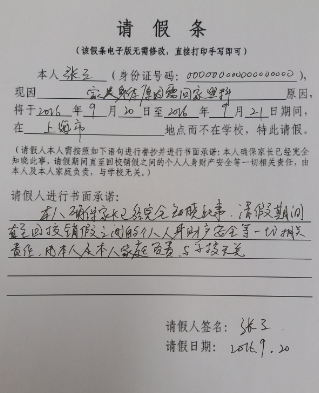 请假条
（该假条电子版无需修改，直接打印手写即可）
本人 张三 （身份证号码：000000000000000000），
现因 家 原因需回家 原因，
将于2016年9月20日至2016年9月21日期间，
在 上海市 地点而不在学校，特此请假。
（请假人本人需按照如下语句进行誊抄并进行书面承诺：本人确保家长已经完全
知晓此事，请假期间直至回校销假之间的个人人身财产安全等一切相关责任，由
本人及本人家庭负责，与学校无关。
请假人进行书面承诺：
本人确保家长已经完全知晓此事，请假期间
直至回校销假之间的个人人身财产安全等一切相关
责任，由本人及本人家庭负责，与学校无关
请假人签名：张三
请假日期：2016.9.20